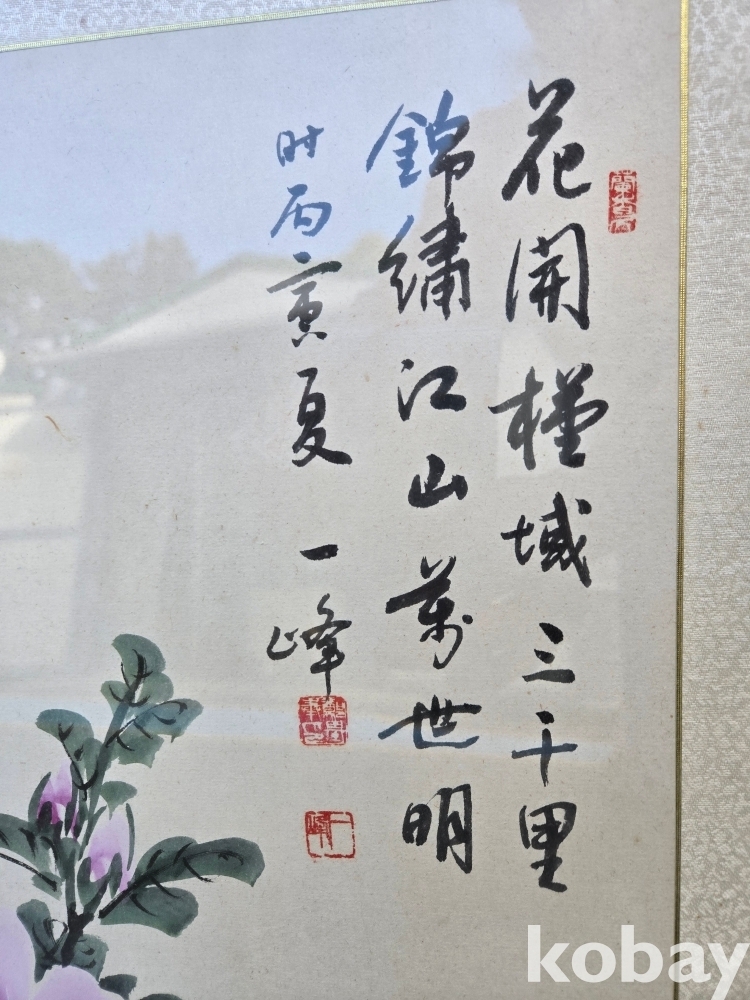 花開槿域三千里
錦繡江山萬世明
時丙寅夏 一峰
kobay